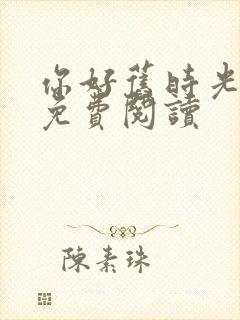 你好舊時光
免費閱讀
陳素珠